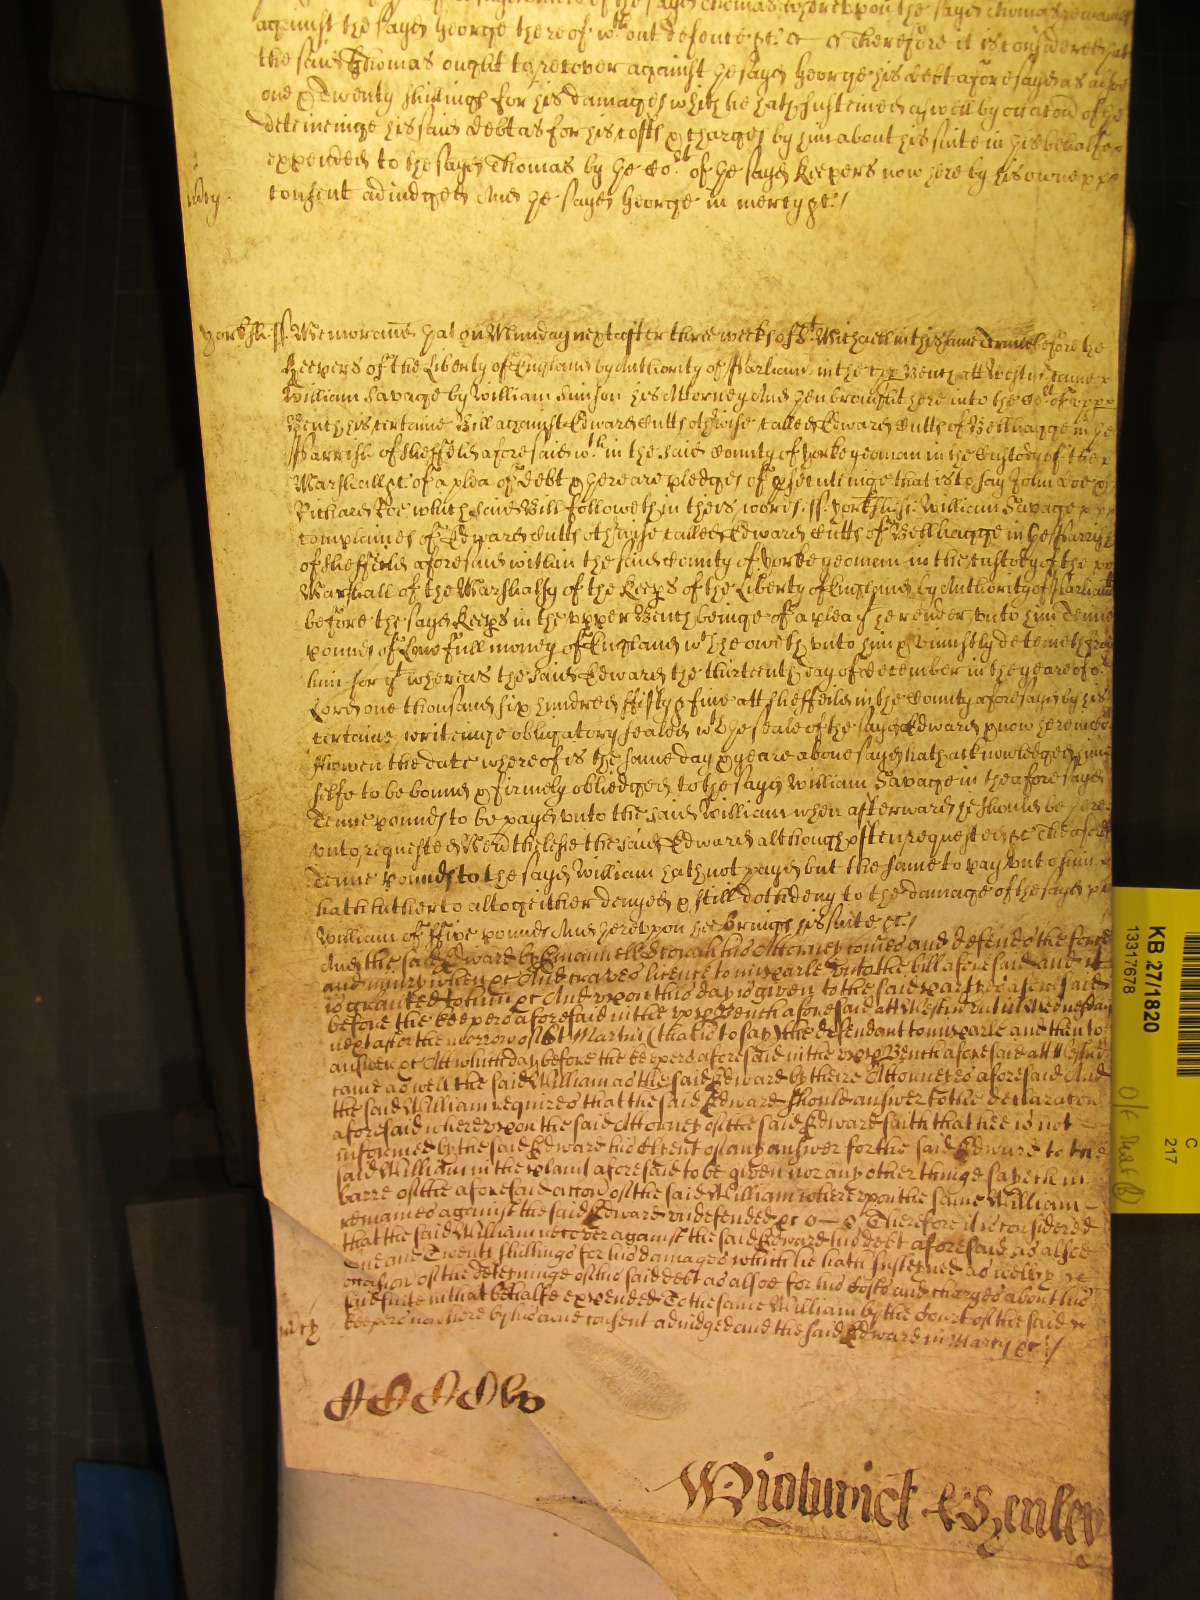 of the sayd Thomas whereupon the sayd Thomas remaines
against the sayd George thereof wth out defence &c. Therefore it is considered that
the said Thomas ought to recover against the sayd George his debt aforesayd as alsoe
one & Twenty shillings for his damages which he hath susteined aswell by occacon of the
deteineinge his said debt as for his costs & charges by him about his suite in his behalfe
expended to the sayd Thomas by the Cort of the sayd Keepers now here by his owne
consent adiudged And the sayd George in mercy &c./
mercy
Yorksh: ss. Memorand that on Munday next after three weeks of St Michaell in this same Terme before the
Keepers of the Liberty of England by Authority of Parliamt in the upp Bench att Westmr came
William Savage by William Simson his Attorney And then brought here into the Cort of upp
Bench his certaine Bill against Edward Cutts otherwise called Edward Cutts of Bellhagge in the
Parrish of Sheffeild aforesaid wth in the said County of Yorke yeoman in the Custody of the
Marshall &c of a plea of Debt & there are pledges of prosecutinge that is to say John Doe &
Richard Roe which said Bill followeth in theis words. ss. Yorksh: ss. William Savage
complaines of Edward Cutts otherwise called Edward Cutts of Bellhagge in the Parrish
of Sheffeild aforesaid within the said County of Yorke yeoman in the custody of the
Marshall of the Marshalsy of the Keeps of the Liberty of England by Authority of Parliamt
before the sayd Keeps in the upper Bench beinge of a plea that he render unto him Tenne
pounds of Lawfull money of England wch he oweth unto him & uniustly deteineth from
him for yt whereas the said Edward the thirteenth day of December in the yeare of or
Lord one thousand six hundred fifty & five att Sheffeild in the County aforesayd by his
certaine writeinge obligatory sealed wth the seale of the sayd Edward & now here in Cort
showen the date whereof is the same day & yeare above sayd hath acknowledged him
selfe to be bound & firmely obliedged to the sayd William Savage in the aforesayd
Tenne pounds to be payd unto the said William when afterwards he should be there
unto requested Neverthelesse the said Edward although often requested &c The aforesd
Tenne Pounds to the sayd William hath not payd but the same to pay unto him
hath hitherto altogeither denyed & still doth deny to the damage of the sayd
William of ffive pounds And thereupon hee brings his suite &c./
And the said Edward by Emanuell his Attorney comes and defends the force
and iniury when &c And craves licence to imparle unto the bill aforesaid and it
is granted to him &c And upon this day is given to the said parties aforesaid
before the Keepers aforesaid in the upp Bench aforesaid att Westmr until Wednesday
next after the morrow of St Martin (that is to say) the defendant to imparle and then to
answer &c Att which day before the Keepers aforesaid in the upp Bench aforesaid att Westmr
came as well the said William as the said Edward by theire Attorneyes aforesaid And
the said William requires that the said Edward should answer to the declaracon
aforesaid whereupon the said Attorney of the said Edward saith that hee is not
informed by the said Edward his Clyent of any answer for the said Edward to the
said William in the plaint aforesaid to be given nor any other thinge sayeth in
barre of the aforesaid accon of the said William whereupon the same William
remaines against the said Edward undefended &c Therefore it is considered
that the said William recover against the said Edward his debt aforesaid as alsoe
One and Twenty shillings for his damages which he hath susteyned as well by ye
occasion of the deteyninge of his said debt as alsoe for his Costs and charges about his
suite in that behalfe expended To the same William by the Court of the said
Keepers now here by his owne consent adiudged and the said Edward in Marcy &c /
mercy
Wightwick & Henley
KB 27/1820
13317678
C
217